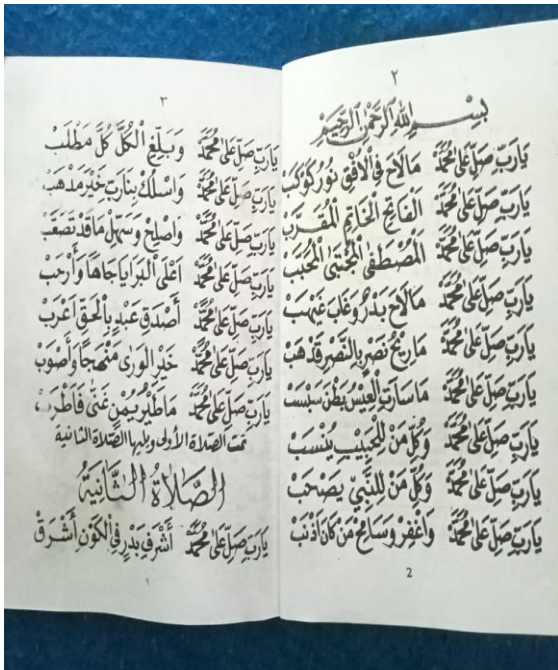 ٢
بِسْــــمِ اللهِ الرَّحْمٰنِ الرَّحِيْمِ
يَارَبِّ صَلِّ عَلٰى مُحَمَّدْ مَالَاحَ فِي الْاُفْقِ نُوْرُ كَوْكَبْ
يَارَبِّ صَلِّ عَلٰى مُحَمَّدْ الْفَاتِحِ الْخَاتِمِ الْمُقَرَّبْ
يَارَبِّ صَلِّ عَلٰى مُحَمَّدْ الْمُصْطَفَى الْمُجْتَبَى الْمُحَبَّبْ
يَارَبِّ صَلِّ عَلٰى مُحَمَّدْ مَالَاحَ بَدْرٌ وَغَابَ غَيْهَبْ
يَارَبِّ صَلِّ عَلٰى مُحَمَّدْ مَارِيْحُ نَصْرٍ بِالنَّصْرِ قَدْهَبْ
يَارَبِّ صَلِّ عَلٰى مُحَمَّدْ مَاسَارَتِ الْعِيْسُ بَطْنَ سَبْسَبْ
يَارَبِّ صَلِّ عَلٰى مُحَمَّدْ وَكُلِّ مَنْ لِلْحَبِيْبِ يُنْسَبْ
يَارَبِّ صَلِّ عَلٰى مُحَمَّدْ وَكُلِّ مَنْ لِلنَّبِيِّ يَصْحَبْ
يَارَبِّ صَلِّ عَلٰى مُحَمَّدْ وَاغْفِرْ وَسَامِحْ مَنْ كَانَ اَذْنَبْ
2
٣
يَارَبِّ صَلِّ عَلٰى مُحَمَّدْ وَبَلِّغِ الْكُلَّ كُلَّ مَطْلَبْ
يَارَبِّ صَلِّ عَلٰى مُحَمَّدْ وَاسْلُكْ بِنَارَبِّ خَيْرَ مَذْهَبْ
يَارَبِّ صَلِّ عَلٰى مُحَمَّدْ وَاصْلِحْ وَسَهِّلْ مَاقَدْ تَصَعَّبْ
يَارَبِّ صَلِّ عَلٰى مُحَمَّدْ اَعْلَى الْبَرَايَا جَاهًا وَأَرْحَبْ
يَارَبِّ صَلِّ عَلٰى مُحَمَّدْ أَصْدَقِ عَبْدٍ بِالْحَقِّ اَعْرَبْ
يَارَبِّ صَلِّ عَلٰى مُحَمَّدْ خَيْرِ الْوَرٰى مَنْهَجًا وَأَصْوَبْ
يَارَبِّ صَلِّ عَلٰى مُحَمَّدْ مَاطَيْرُ يُمْنٍ غَنّٰى فَاَطْرَبْ،
تمت الصلاة الأولى ويليها الصلاة الثانية
اَلصَّلَاةُ الثَّانِيَةُ
يَارَبِّ صَلِّ عَلٰى مُحَمَّدْ أَشْرَفِ بَدْرٍ فِي الْكَوْنِ أَشْرَقْ